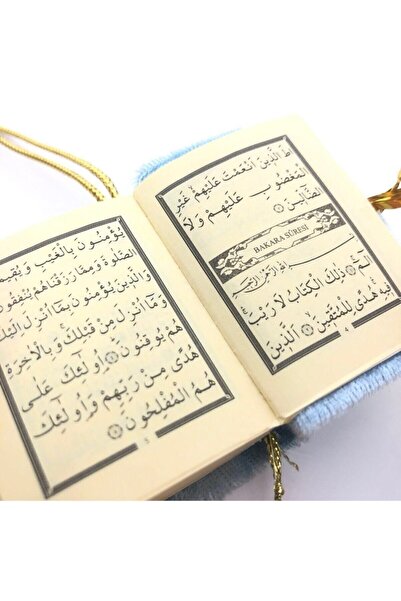 اطَ الَّذِينَ اَنْعَمْتَ عَلَيْهِمْ غَيْرِ
الْمَغْضُوبِ عَلَيْهِمْ وَلَا
الضَّٓالِّينَ ﴿٧﴾
BAKARA SÛRESİ
بِسْمِ اللّٰهِ الرَّحْمٰنِ الرَّحِيمِ
الٓمٓ ﴿١﴾ ذٰلِكَ الْكِتَابُ لَا رَيْبَ
فِيهِ هُدًى لِلْمُتَّقِينَ ﴿٢﴾ اَلَّذِينَ
4
يُؤْمِنُونَ بِالْغَيْبِ وَيُقِيمُ
الصَّلٰوةَ وَمِمَّا رَزَقْنَاهُمْ يُنْفِقُونَ
وَالَّذِينَ يُؤْمِنُونَ بِمَٓا اُنْزِلَ اِلَيْكَ
وَمَٓا اُنْزِلَ مِنْ قَبْلِكَ وَبِالْاٰخِرَةِ
هُمْ يُوقِنُونَ ﴿٤﴾ اُو۬لٰٓئِكَ عَلٰى
هُدًى مِنْ رَبِّهِمْ وَاُو۬لٰٓئِكَ
هُمُ الْمُفْلِحُونَ ﴿٥﴾
5